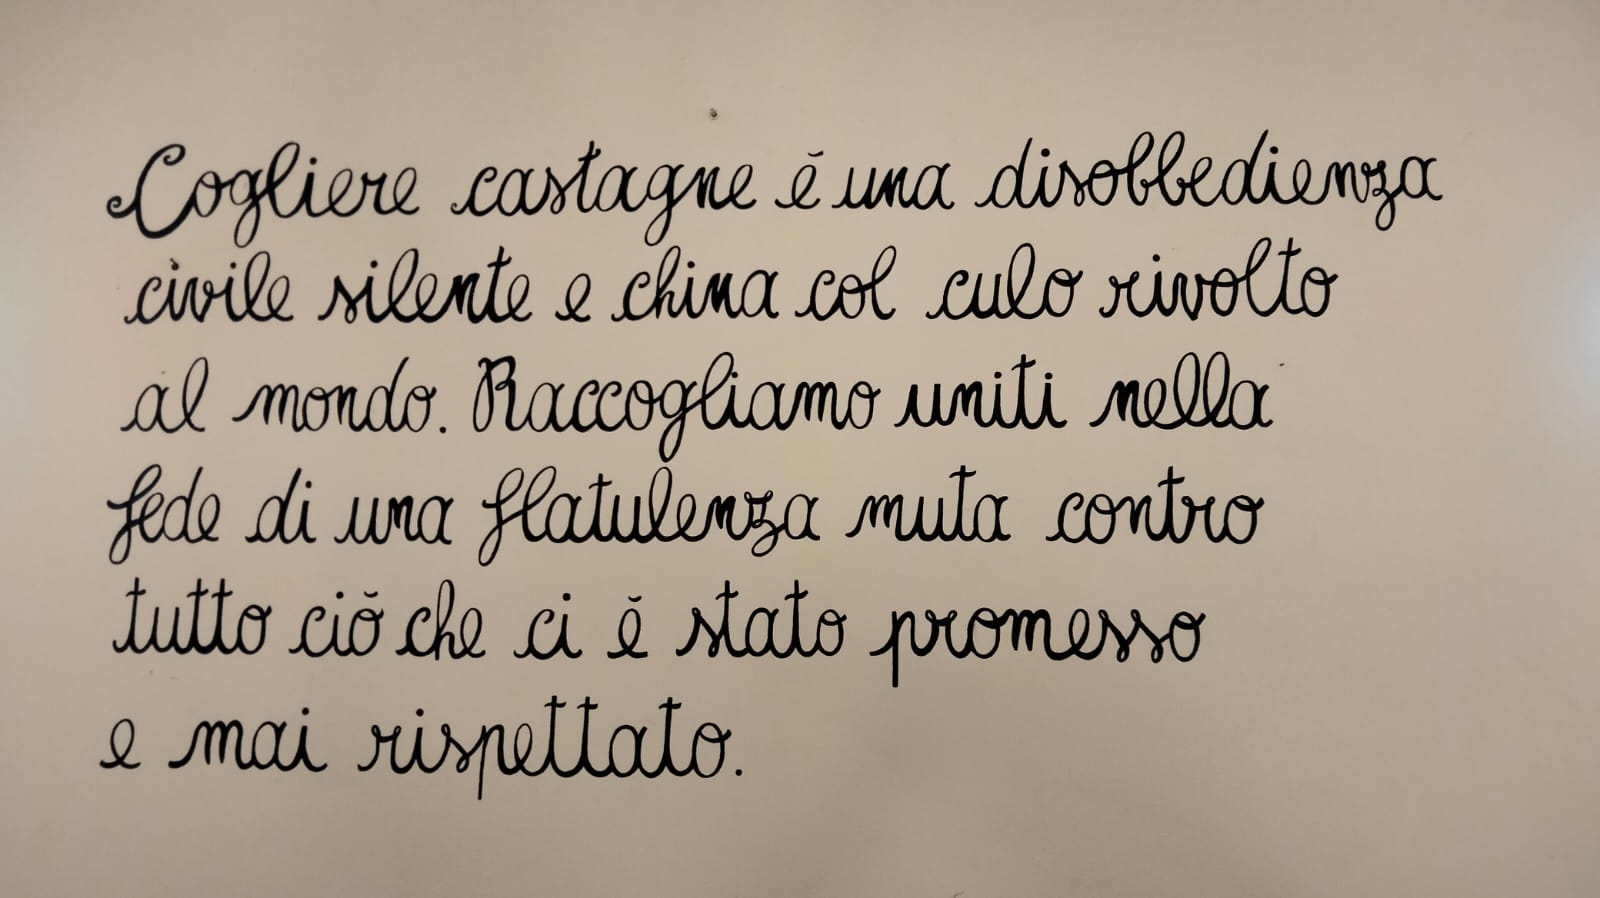 Cogliere castagne è una disobbedienza
civile silente e china col culo rivolto
al mondo. Raccogliamo uniti nella
fede di una flatulenza muta contro
tutto ciò che ci è stato promesso
e mai rispettato.